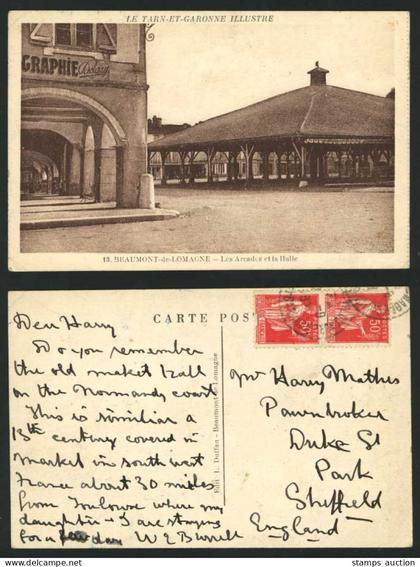 LE TARN-ET-GARONNE ILLUSTRE
GRAPHIE
13. BEAUMONT-de-LOMAGNE — Les Arcades et la Halle
CARTE POST
Dear Harry
Do you remember
the old market hall
on the Normandy coast
This is similar a
13th century covered in
market in south west
France about 30 miles
from Toulouse where my
daughter & I are staying
for a few days W E Burrell
Edit L. Duffau - Beaumont-de-Lomagne
50c
50c
Mr Harry Mathis
Pawnbroker
Duke St
Park
Sheffield
England
stamps auction site: www.delcampe.net